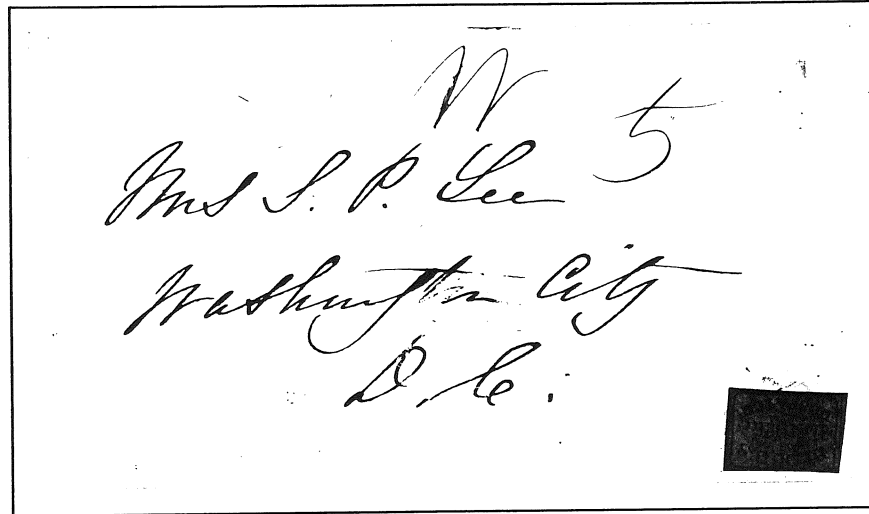 W 5
Mrs S. P. Lee
Washington City
D. C.